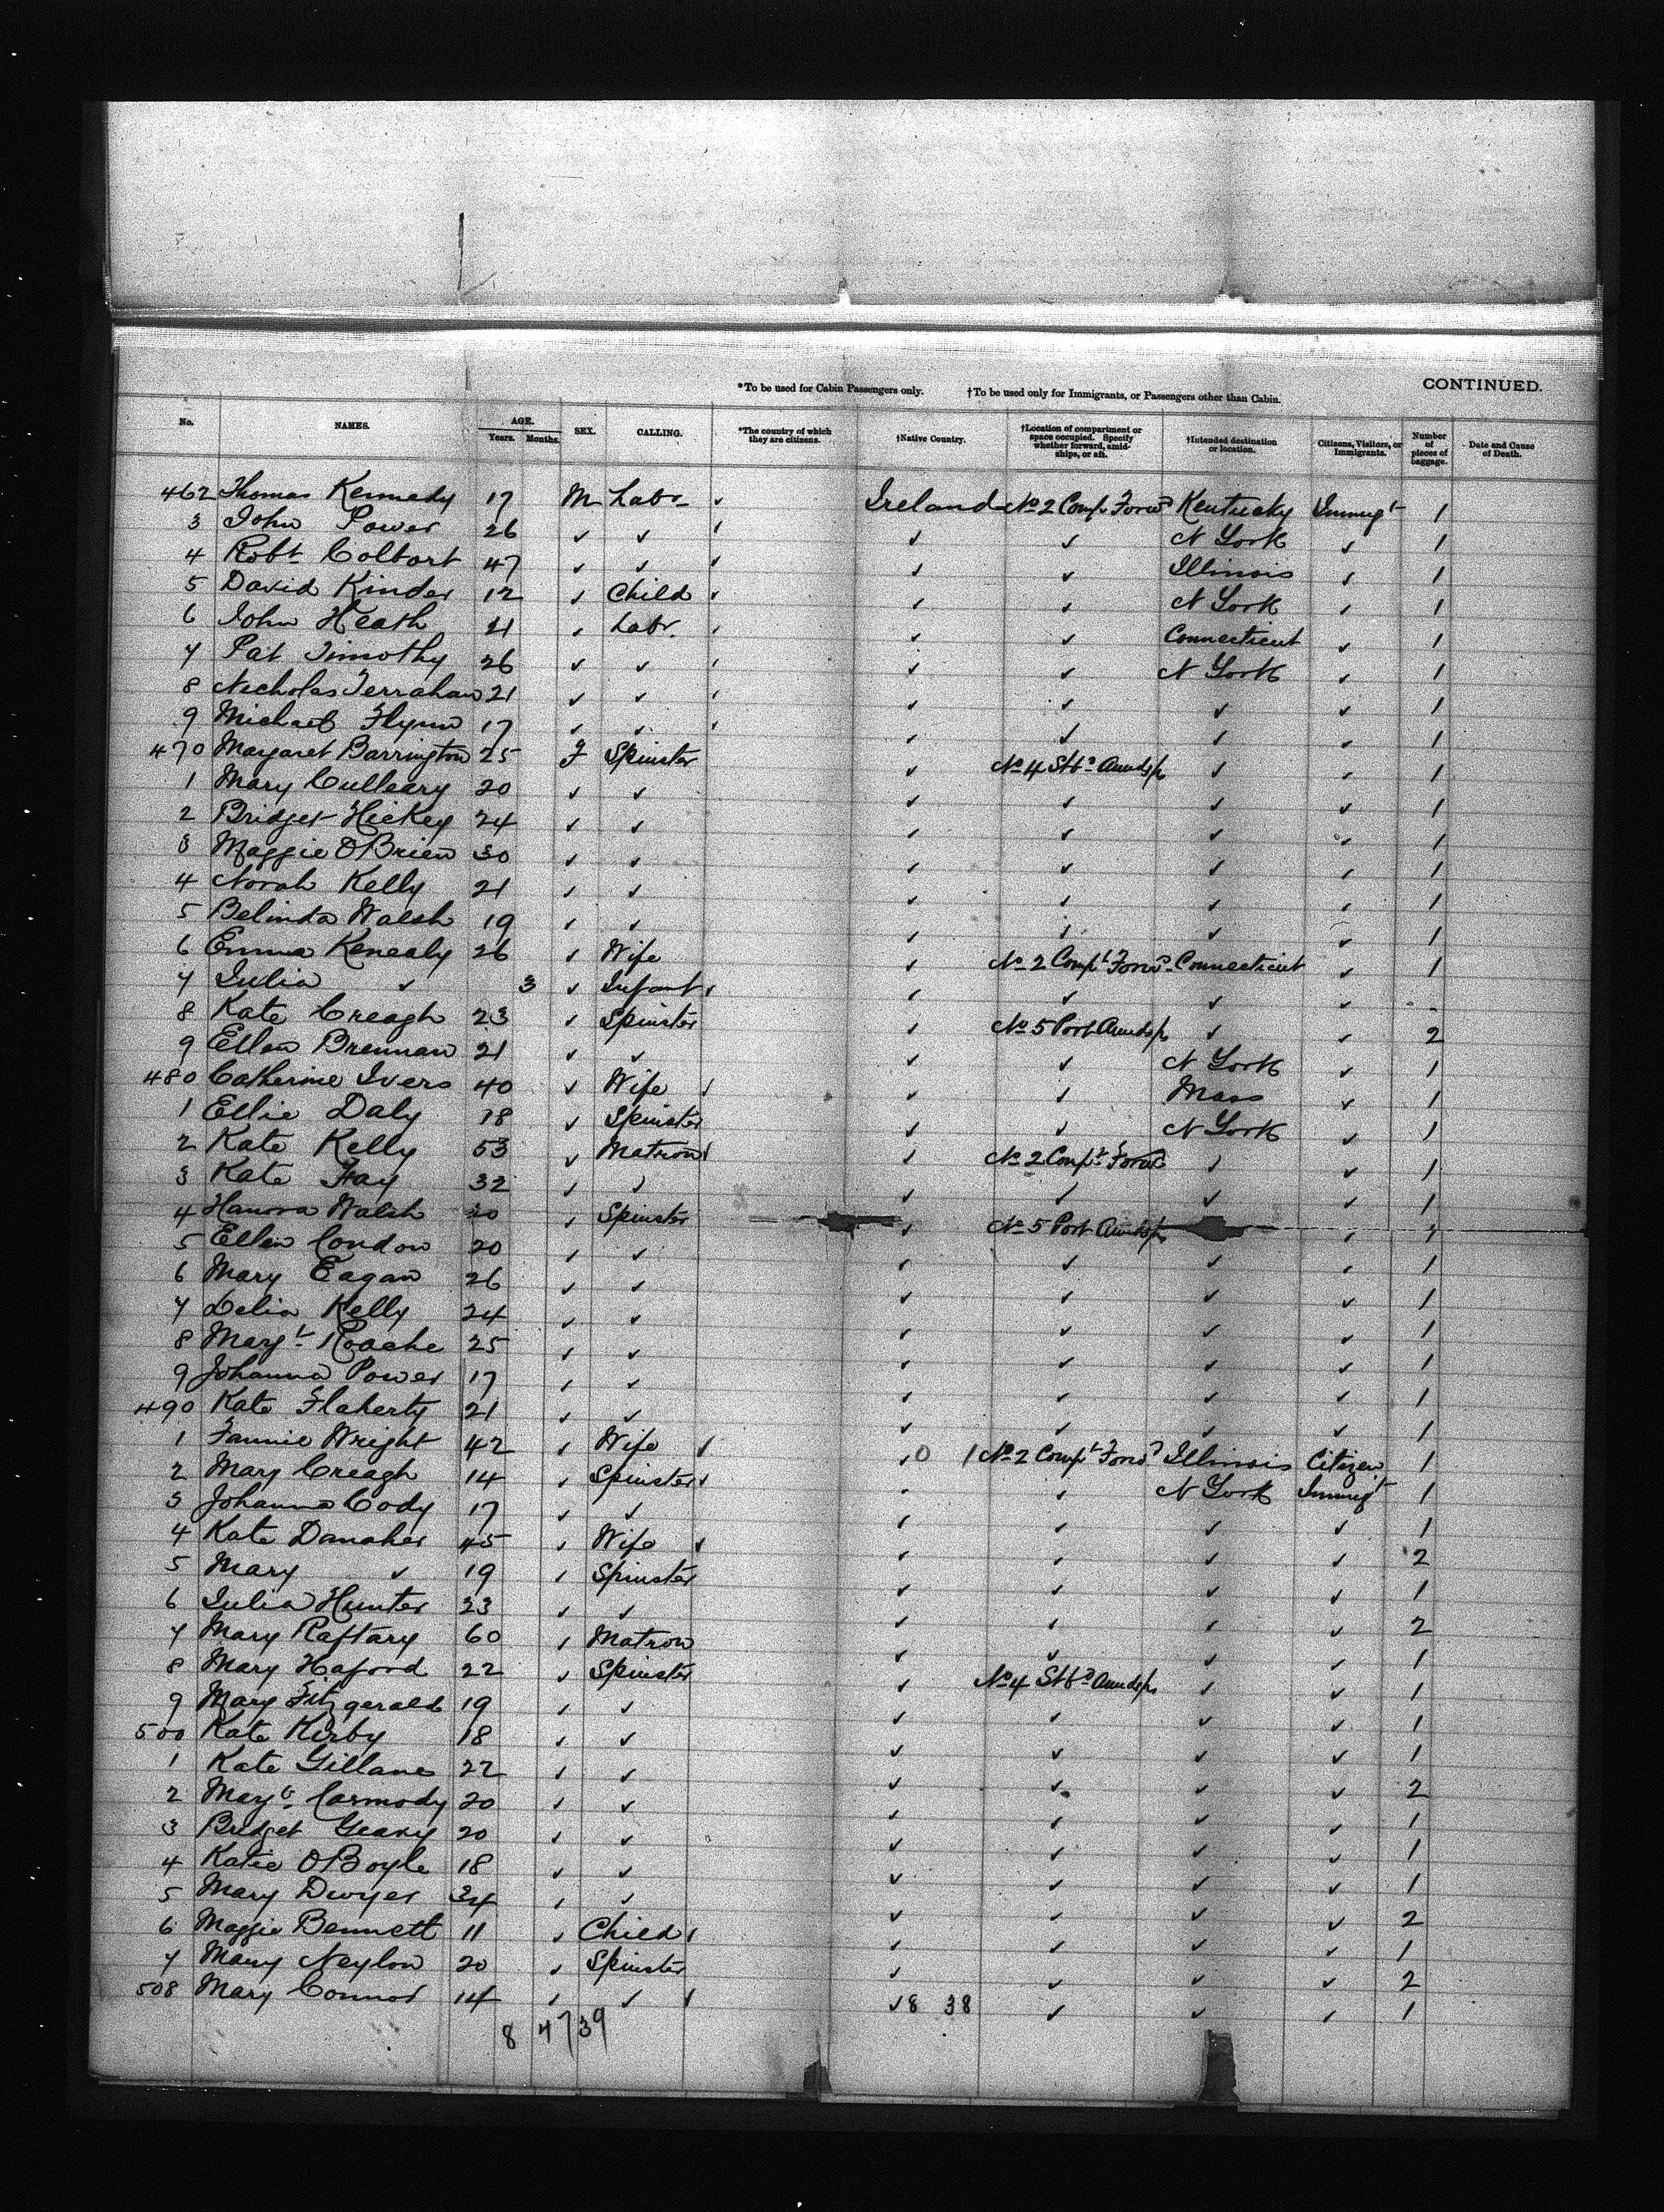 *To be used for Cabin Passengers only. †To be used only for Immigrants, or Passengers other than Cabin. CONTINUED.
No. NAMES. AGE. Years. Months. SEX. CALLING. *The country of which they are citizens. †Native Country. †Location of compartment or space occupied. Specify whether forward, amidships, or aft. †Intended destination or location. Citizens, Visitors, or Immigrants. Number of pieces of baggage. Date and Cause of Death.
462 Thomas Kennedy 17 M Labr ✓ Ireland No 2 Compt Forwd Kentucky Immigt 1
3 John Power 26 ✓ ✓ ✓ ✓ ✓ N York ✓ 1
4 Robt Colbart 47 ✓ ✓ ✓ ✓ ✓ Illinois ✓ 1
5 David Kinder 12 ✓ Child ✓ ✓ ✓ N York ✓ 1
6 John Heath 21 ✓ Labr. ✓ ✓ ✓ Connecticut ✓ 1
7 Pat Timothy 26 ✓ ✓ ✓ ✓ ✓ N York ✓ 1
8 Nicholas Terrahan 21 ✓ ✓ ✓ ✓ ✓ ✓ ✓ 1
9 Michael Flynn 17 ✓ ✓ ✓ ✓ ✓ ✓ ✓ 1
470 Margaret Barrington 25 F Spinster ✓ No 4 Stbd Amidsps ✓ ✓ 1
1 Mary Culleary 20 ✓ ✓ ✓ ✓ ✓ ✓ 1
2 Bridget Hickey 24 ✓ ✓ ✓ ✓ ✓ ✓ 1
3 Maggie OBrien 30 ✓ ✓ ✓ ✓ ✓ ✓ 1
4 Norah Kelly 21 ✓ ✓ ✓ ✓ ✓ ✓ 1
5 Belinda Walsh 19 ✓ ✓ ✓ ✓ ✓ ✓ 1
6 Emma Kenealy 26 ✓ Wife ✓ No 2 Compt Forwd Connecticut ✓ 1
7 Julia ✓ 3 ✓ Infant ✓ ✓ ✓ ✓ ✓ -
8 Kate Creagh 23 ✓ Spinster ✓ No 5 Port Amidsps ✓ ✓ 2
9 Ellen Brennan 21 ✓ ✓ ✓ ✓ N York ✓ 1
480 Catherine Ivers 40 ✓ Wife ✓ ✓ ✓ Mass ✓ 1
1 Ellie Daly 18 ✓ Spinster ✓ ✓ N York ✓ 1
2 Kate Kelly 53 ✓ Matron ✓ ✓ No 2 Compt Forwd ✓ ✓ 1
3 Kate Hay 32 ✓ ✓ ✓ ✓ ✓ ✓ 1
4 Hanora Walsh 20 ✓ Spinster ✓ No 5 Port Amidsps ✓ 1
5 Ellen Condon 20 ✓ ✓ ✓ ✓ ✓ ✓ 1
6 Mary Eagan 26 ✓ ✓ ✓ ✓ ✓ ✓ 1
7 Delia Kelly 24 ✓ ✓ ✓ ✓ ✓ ✓ 1
8 Margt Roache 25 ✓ ✓ ✓ ✓ ✓ ✓ 1
9 Johanna Power 17 ✓ ✓ ✓ ✓ ✓ ✓ 1
490 Kate Flaherty 21 ✓ ✓ ✓ ✓ ✓ ✓ 1
1 Fannie Wright 42 ✓ Wife ✓ ✓ 0 1 No 2 Compt Forwd Illinois Citizen 1
2 Mary Creagh 14 ✓ Spinster ✓ ✓ ✓ N York Immigt 1
3 Johanna Cody 17 ✓ ✓ ✓ ✓ ✓ ✓ 1
4 Kate Danaher 45 ✓ Wife ✓ ✓ ✓ ✓ ✓ 2
5 Mary ✓ 19 ✓ Spinster ✓ ✓ ✓ ✓ 1
6 Julia Hunter 23 ✓ ✓ ✓ ✓ ✓ ✓ 2
7 Mary Raftary 60 ✓ Matron ✓ ✓ ✓ ✓ 1
8 Mary 22 ✓ Spinster ✓ No 4 Stbd Amidsps ✓ ✓ 1
9 Mary Fitzgerald 19 ✓ ✓ ✓ ✓ ✓ ✓ 1
500 Kate Kirby 18 ✓ ✓ ✓ ✓ ✓ ✓ 1
1 Kate Gillane 22 ✓ ✓ ✓ ✓ ✓ ✓ 2
2 Margt Carmody 20 ✓ ✓ ✓ ✓ ✓ ✓ 1
3 Bridget Geary 20 ✓ ✓ ✓ ✓ ✓ ✓ 1
4 Katie OBoyle 18 ✓ ✓ ✓ ✓ ✓ ✓ 1
5 Mary Dwyer 34 ✓ ✓ ✓ ✓ ✓ ✓ 2
6 Maggie Bennett 11 ✓ Child ✓ ✓ ✓ ✓ ✓ 1
7 Mary Neylon 20 ✓ Spinster ✓ ✓ ✓ ✓ 2
508 Mary Connor 14 ✓ ✓ ✓ ✓ 8 38 ✓ ✓ ✓ 1
8 47 39